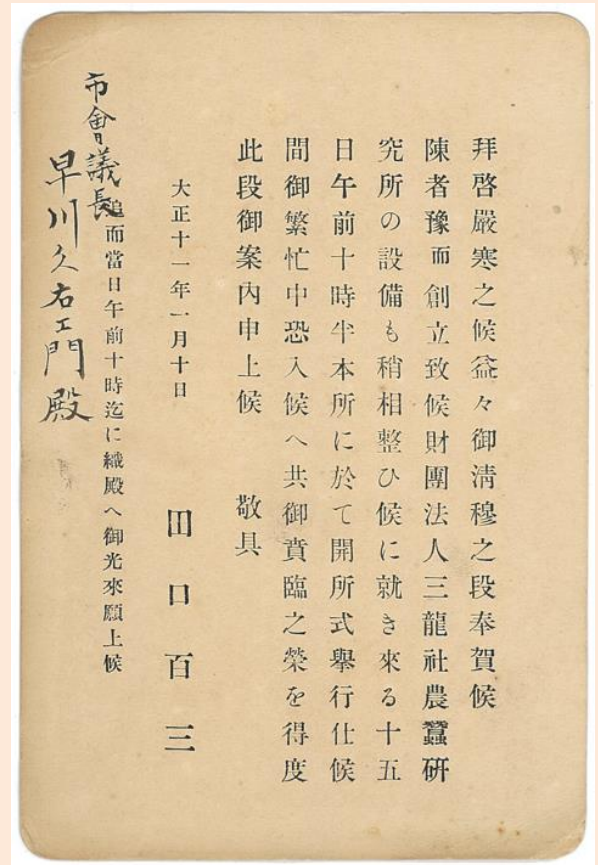 拜啓嚴寒之候益々御淸穆之段奉賀候
陳者豫而創立致候財團法人三龍社農蠶硏
究所の設備も稍相整ひ候に就き來る十五
日午前十時半本所に於て開所式擧行仕候
間御繁忙中恐入候へ共御賁臨之榮を得度
此段御案內申上候　　敬具
大正十一年一月十日
田口百三
追而當日午前十時迄に織殿へ御光來願上候
市會議長
早川久右エ門殿